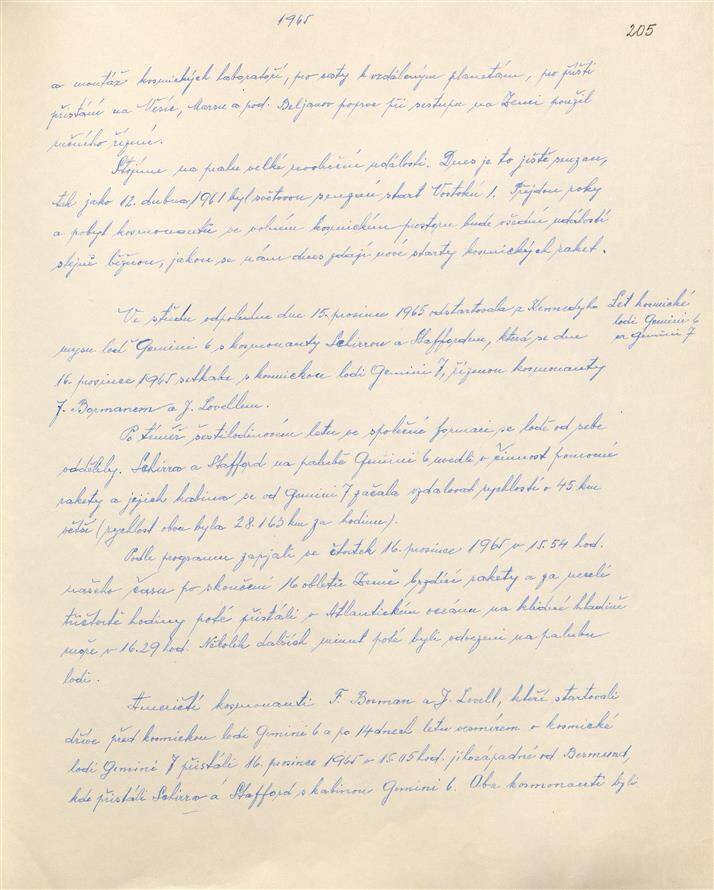 1965
205
a montáž kosmických laboratoří, po cesty k vzdáleným planetám, po příští
přistání na Marsu a pod. Beljanov poprvé při sestupu na Zemi použil
ručního řízení.
Stojíme na prahu velké události. Dnes je to jistě senzací,
tak jako 12. dubna 1961 byl světovou senzací start Vostoku 1. Přejdou roky
a pobyt kosmonautů ve volném kosmickém prostoru bude všední událostí
stejně běžnou, jakou se nám dnes zdají nové starty kosmických raket.
Ve středu odpoledne dne 15. prosince 1965 odstartovala z Kennedyho
mysu loď Gemini 6 s kosmonauty Schirrou a Staffordem, která se dne
16. prosince 1965 setkala s kosmickou lodí Gemini 7, řízenou kosmonauty
F. Bormanem a J. Lovellem.
Let kosmické
lodi Gemini 6
a Gemini 7
Po téměř šestihodinovém letu ve společné formaci se lodě od sebe
oddělily. Schirra a Stafford na palubě Gemini 6 uvedli v činnost pomocné
rakety a jejich kabina se od Gemini 7 začala vzdalovat rychlostí o 45 km
větší (rychlost obou byla 28.163 km za hodinu).
Podle programu zapjali ve čtvrtek 16. prosince 1965 v 15.54 hod.
našeho času po skončení 16 obletů Země brzdící rakety a za necelé
tři čtvrtě hodiny poté přistáli v Atlantickém oceánu na klidné hladině
moře v 16.29 hod. Několik dalších minut poté byli odvezeni na palubu
lodi.
Američtí kosmonauti F. Borman a J. Lovell, kteří startovali
dříve před kosmickou lodí Gemini 6 a po 14 dnech letu vesmírem v kosmické
lodi Gemini 7 přistáli 16. prosince 1965 v 15.05 hod. jihozápadně od Bermud,
kde přistáli Schirra a Stafford s kabinou Gemini 6. Oba kosmonauti byli